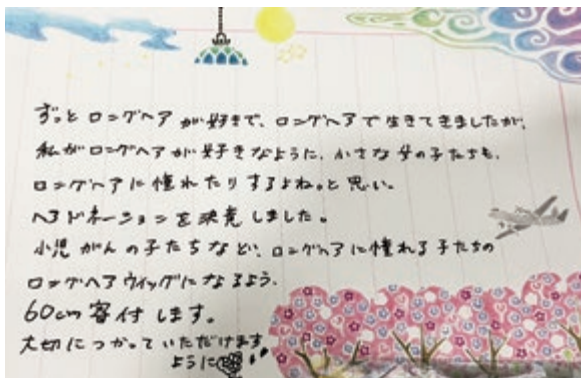 ずっとロングヘアが好きで、ロングヘアで生きてきましたが、
私がロングヘアが好きなように、小さな女の子たちも、
ロングヘアに憧れたりするよね。と思い。
ヘアドネーションを決意しました。
小児がんの子たちなど、ロングヘアに憧れる子たちの
ロングヘアウィッグになるよう。
60cm寄付します。
大切につかっていただけます
ように